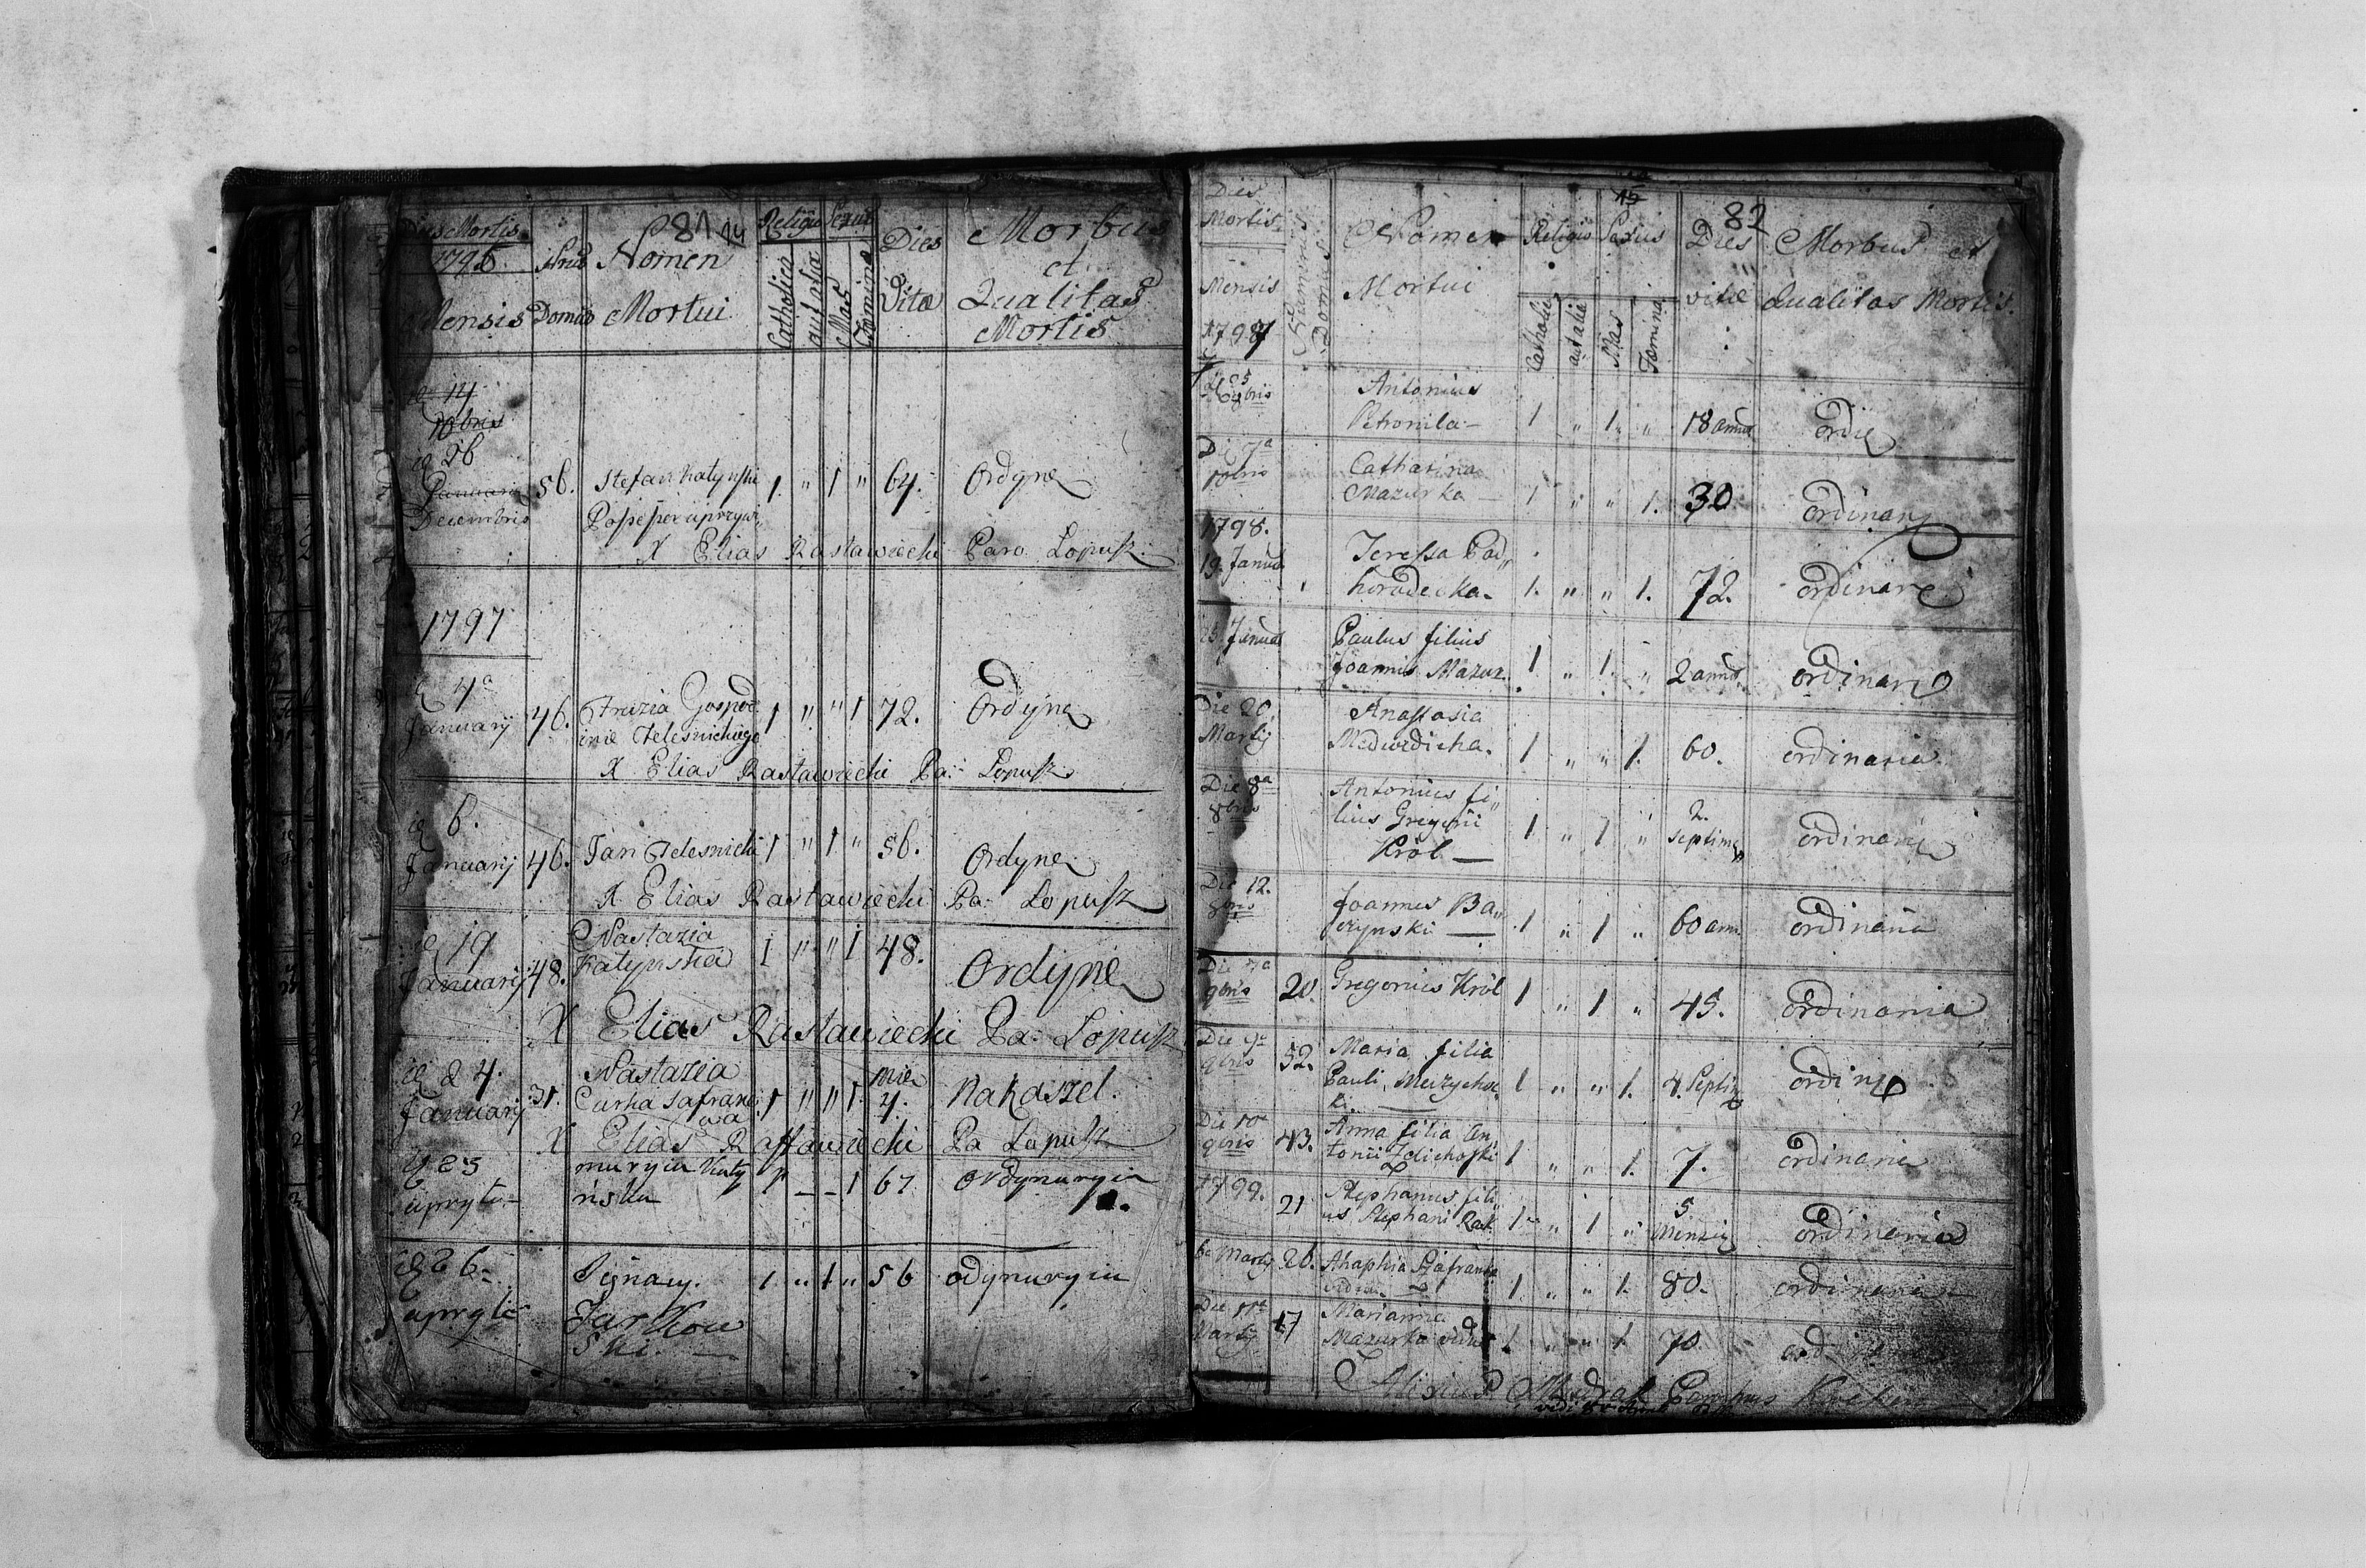 Dies Mortis 81 14 Religio Sexus Morbus
1796 Nrus Nomen Dies et
Mensis Domus Mortui Catholica aut alia Mas Femina Vitæ Qualitas
Mortis
14
10bris
26
Januarij 56. Stefan Katynski 1. " 1 " 64. Ordyne
Decembris
X Elias Rastawiecki Paro Lopusz
1797
4a
Januarij 46. Fruzia Gospod 1 " " 1 72. Ordyne
inie Telesnickiego
X Elias Rastawiecki Pa: Lopusz
6.
Januarij 46. Jan Telesnicki 1 " 1 " 56. Ordyne
X Elias Rastawiecki Pa: Lopusz
19 Nastazia 1 " " 1 48.
Januarij 48. Katynska Ordyne
X Elias Rastawiecki Pa: Lopusz
24. Nastazia Mie
Januarij 31. Curka Safrano 1 " " 1. 4. Na Kaszel.
wa
X Elias Rastawiecki Pa Lopusz
25 maryia Katy 1 - - 1 67 ordynaryia
apryla nska
26 Ignacy. 1. " 1 " 56 odynaryia
apryla Jankow
ski.
Dies 15 82
Mortis Numerus Domus Nomen Religio Sexus Dies Morbus et
Mensis Mortui Catholica aut alia Mas Femina vitæ Qualitas Mortis.
1797
Antonius
Petronila 1 " 1. " 18 ordie
Di 7a Catharina
10bris Mazurka 1 " " 1. 30 ordinarj
1798.
19. Januar Teressa Pod„
horodecka. 1. " " 1. 72. ordinare
Januar Paulus filius
Joannis Mazur 1 " 1. " 2 ordinar
Die 20. Anastasia
Martij Medwedicha. 1 " " 1. 60. ordinaria
Die 8a Antonius fi„ 2.
8bris lius Gregorii 1 " 1 " septim ordinari
Król
Die 12. Joannes Ba„
8bris czynski 1 " 1 " 60 ann. ordinaria
Die
9bris 20. Gregorius Król 1 " 1 " 45. ordinaria
Die 9a Maria filia
9bris 52. Pauli 1 " " 1. 4. Septim ordin
Die 10 Anna filia An„
9bris 43. tonii Zelichoski 1 " " 1. 7. ordinaria
1799. Stephanus fili„ 5
21 us Stephani Rak 1 " 1 " Mensis ordinaria
6a Martij 26. Ahaphia Szafranka
vidua 1 " " 1. 80. ordinaria
Die 11a Marianna
Martij 17 Mazurka vidua 1 " " 1 70.